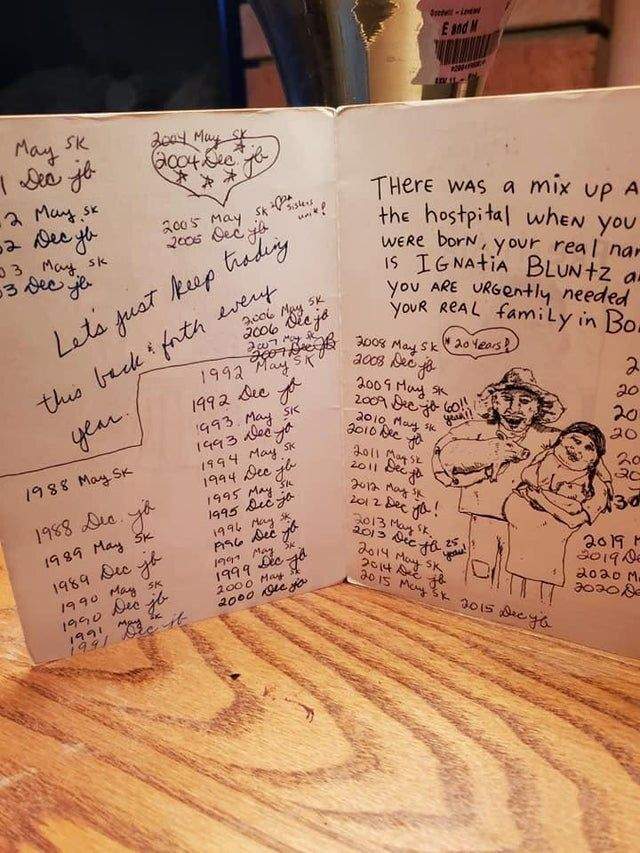 Goodwill - Loveland
E and M
May SK
Dec jb
2 May SK
2 Dec jb
03 May SK
3 Dec jb
2004 May SK
2004 Dec jb
2005 May SK
2005 Dec jb
Sisters
unite!
Let's just keep trading
this back & forth every
year.
2006 May SK
2006 Dec jb
2007 May SK
2007 Dec jb
1988 May SK
1988 Dec. jb
1989 May SK
1989 Dec jb
1990 May SK
1990 Dec jb
1991 May SK
1991 Dec jb
1992 May SK
1992 Dec jb
1993 May SK
1993 Dec jb
1994 May SK
1994 Dec jb
1995 May SK
1995 Dec jb
1996 May SK
1996 Dec jb
1999 May SK
1999 Dec jb
2000 May SK
2000 Dec jb
THERE WAS a mix up A
the hostpital WHEN YOU
WERE born, your real nam
IS IGNATIA BLUNTZ a
YOU ARE URGENTLY needed
YOUR REAL family in Bo
2008 May SK * 20 years!
2008 Dec jb
2009 May SK
2009 Dec jb GO!!
2010 May SK yeah!!
2010 Dec jb
2011 May SK
2011 Dec jb
2012 May SK
2012 Dec jb!
2013 May SK
2013 Dec jb 25 years!
2014 May SK
2014 Dec jb
2015 May SK
2015 Dec jb
2
20
20
20
20
20
30
2019 M
2019 De
2020 M
2020 De